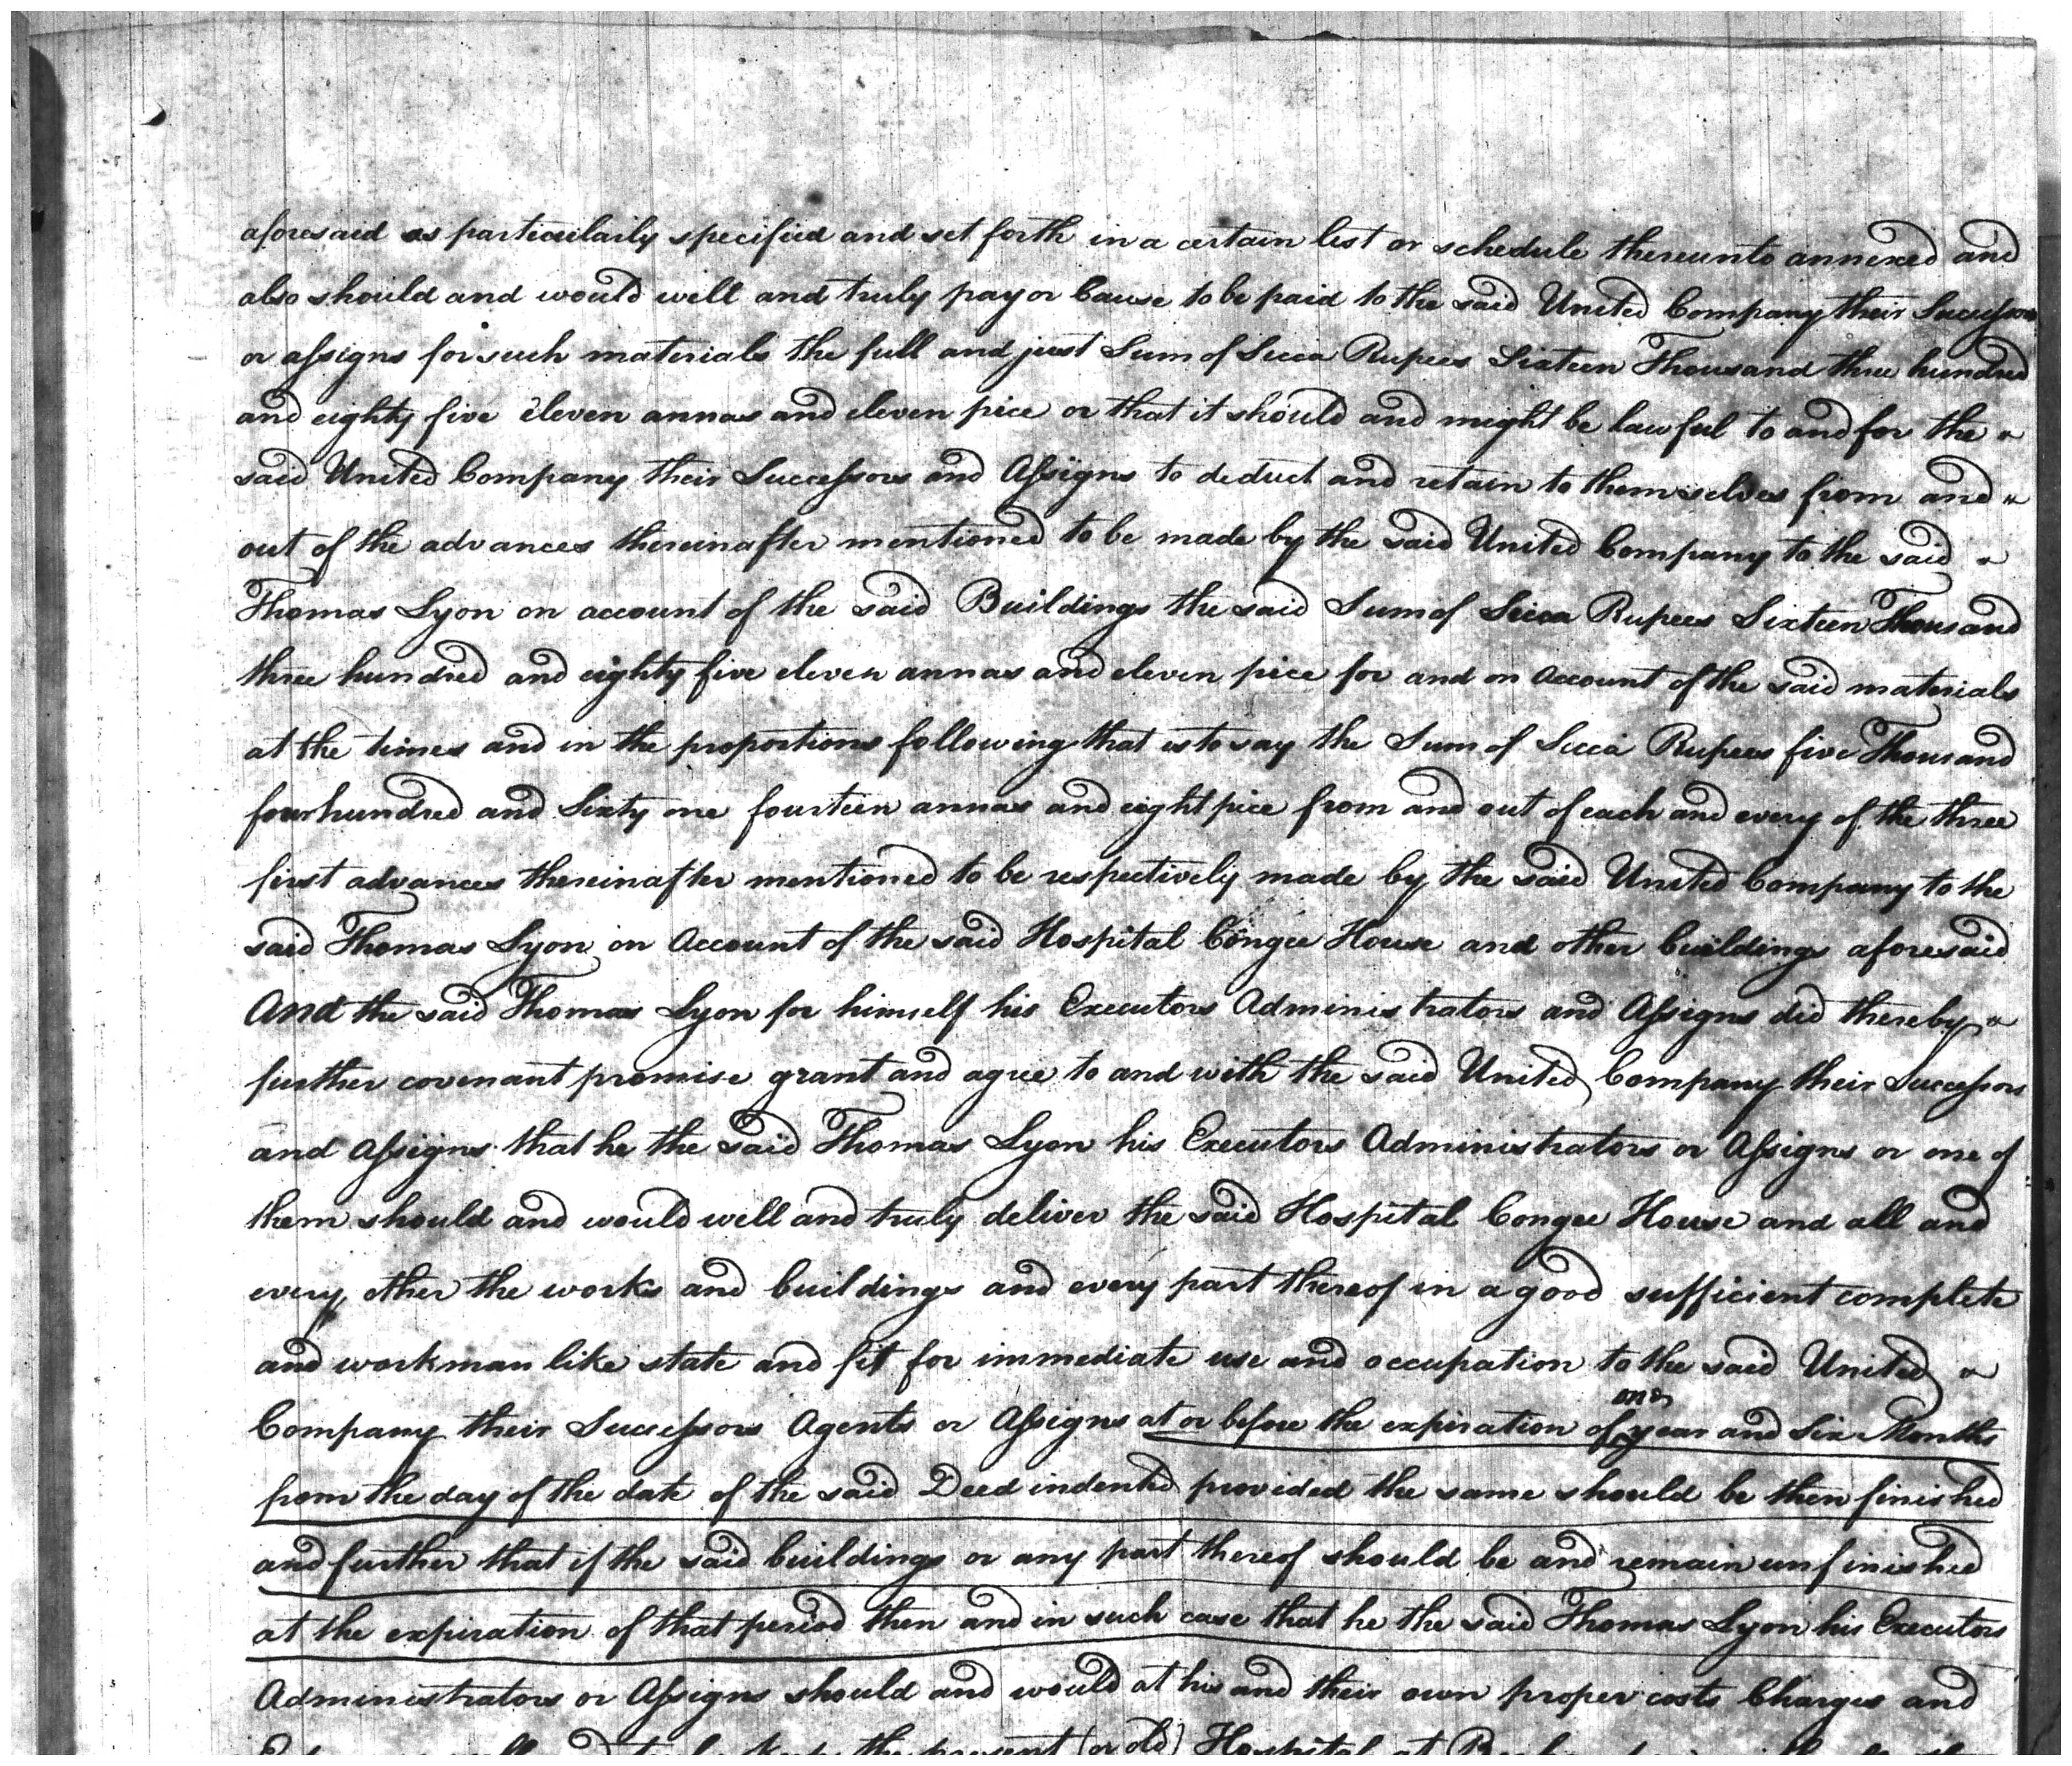 aforesaid as particularly specified and set forth in a certain list or schedule thereunto annexed and
also should and would well and truly pay or Cause to be paid to the said United Company their Successors
or assigns for such materials the full and just Sum of Sicca Rupees Sixteen Thousand three hundred
and eighty five eleven annas and eleven pice or that it should and might be lawful to and for the
said United Company their Successors and Assigns to deduct and retain to themselves from and
out of the advances thereinafter mentioned to be made by the said United Company to the said
Thomas Lyon on account of the said Buildings the said Sum of Sicca Rupees Sixteen Thousand
three hundred and eighty five eleven annas and eleven pice for and on Account of the said materials
at the times and in the proportions following that is to say the Sum of Sicca Rupees five Thousand
four hundred and Sixty one fourteen annas and eight pice from and out of each and every of the three
first advances thereinafter mentioned to be respectively made by the said United Company to the
said Thomas Lyon on Account of the said Hospital Congee House and other buildings aforesaid
And the said Thomas Lyon for himself his Executors Administrators and Assigns did thereby
further covenant promise grant and agree to and with the said United Company their Successors
and Assigns that he the said Thomas Lyon his Executors Administrators or Assigns or one of
them should and would well and truly deliver the said Hospital Congee House and all and
every other the works and buildings and every part thereof in a good sufficient complete
and workman like state and fit for immediate use and occupation to the said United
one
Company their Successors Agents or Assigns at or before the expiration of year and Six Months
from the day of the date of the said Deed indented provided the same should be then finished
and further that if the said buildings or any part thereof should be and remain unfinished
at the expiration of that period then and in such case that he the said Thomas Lyon his Executors
Administrators or Assigns should and would at his and their own proper costs Charges and
the present (or old) Hospital at